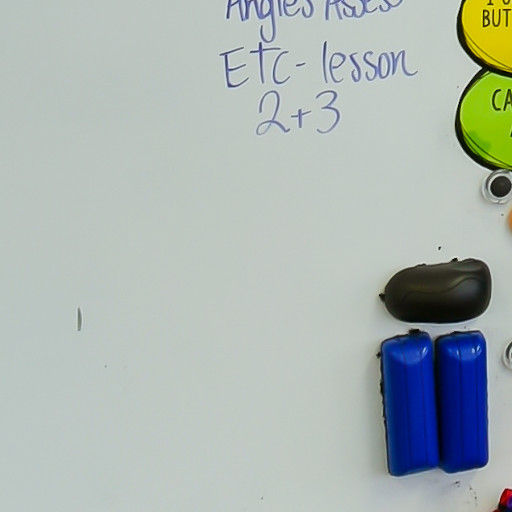 Angles Assess
ETC - lesson
2+3
BUT
CA